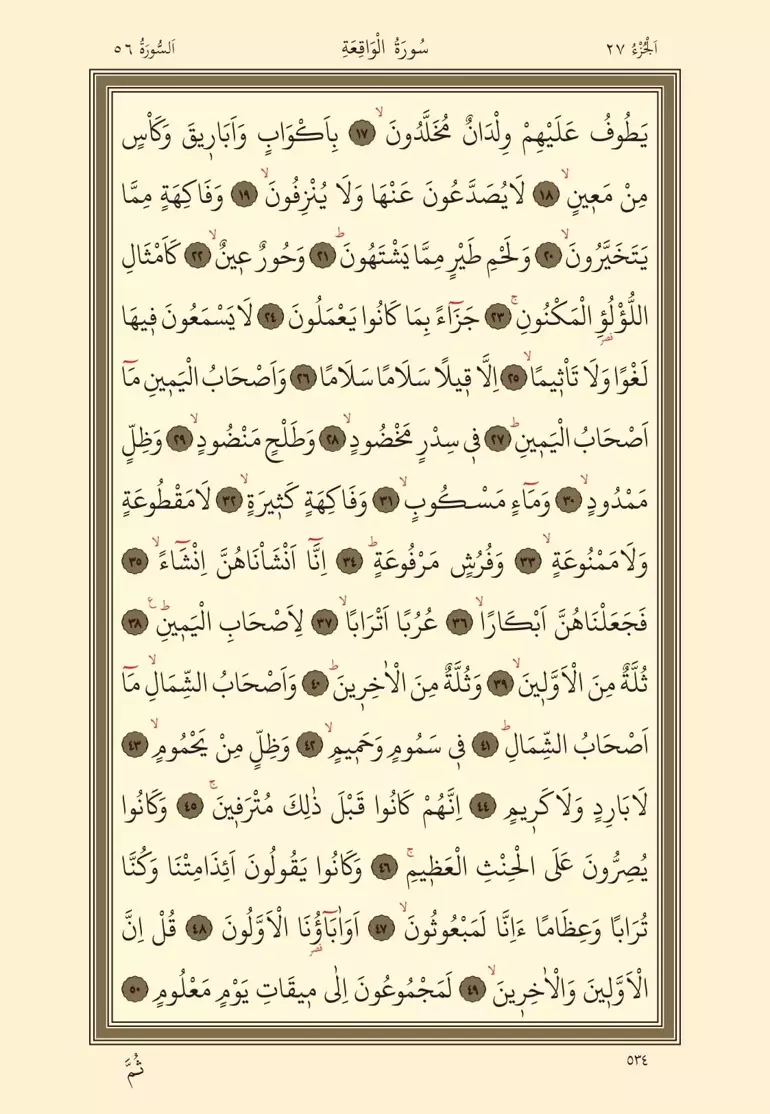 اَلْجُزْءُ ٢٧ سُورَةُ الْوَاقِعَةِ اَلسُّورَةُ ٥٦
يَطُوفُ عَلَيْهِمْ وِلْدَانٌ مُخَلَّدُونَۙ ١٧ بِاَكْوَابٍ وَاَبَار۪يقَ وَكَأْسٍ
مِنْ مَع۪ينٍۙ ١٨ لَايُصَدَّعُونَ عَنْهَا وَلَا يُنْزِفُونَۙ ١٩ وَفَاكِهَةٍ مِمَّا
يَتَخَيَّرُونَۙ ٢٠ وَلَحْمِ طَيْرٍ مِمَّا يَشْتَهُونَۜ ٢١ وَحُورٌ ع۪ينٌۙ ٢٢ كَاَمْثَالِ
اللُّؤْلُؤِ۬ الْمَكْنُونِۚ ٢٣ جَزَٓاءً بِمَا كَانُوا يَعْمَلُونَ ٢٤ لَا يَسْمَعُونَ ف۪يهَا
لَغْوًا وَلَا تَأْث۪يمًاۙ ٢٥ اِلَّا ق۪يلًا سَلَامًا سَلَامًا ٢٦ وَاَصْحَابُ الْيَم۪ينِ مَٓا
اَصْحَابُ الْيَم۪ينِۜ ٢٧ ف۪ي سِدْرٍ مَخْضُودٍۙ ٢٨ وَطَلْحٍ مَنْضُودٍۙ ٢٩ وَظِلٍّ
مَمْدُودٍۙ ٣٠ وَمَٓاءٍ مَسْكُوبٍۙ ٣١ وَفَاكِهَةٍ كَث۪يرَةٍۙ ٣٢ لَامَقْطُوعَةٍ
وَلَامَمْنُوعَةٍۙ ٣٣ وَفُرُشٍ مَرْفُوعَةٍۜ ٣٤ اِنَّٓا اَنْشَأْنَاهُنَّ اِنْشَٓاءًۙ ٣٥
فَجَعَلْنَاهُنَّ اَبْكَارًاۙ ٣٦ عُرُبًا اَتْرَابًاۙ ٣٧ لِاَصْحَابِ الْيَم۪ينِۜ ع ٣٨
ثُلَّةٌ مِنَ الْاَوَّل۪ينَۙ ٣٩ وَثُلَّةٌ مِنَ الْاٰخِر۪ينَۜ ٤٠ وَاَصْحَابُ الشِّمَالِۙ مَٓا
اَصْحَابُ الشِّمَالِۜ ٤١ ف۪ي سَمُومٍ وَحَم۪يمٍۙ ٤٢ وَظِلٍّ مِنْ يَحْمُومٍۙ ٤٣
لَابَارِدٍ وَلَاكَر۪يمٍ ٤٤ اِنَّهُمْ كَانُوا قَبْلَ ذٰلِكَ مُتْرَف۪ينَۚ ٤٥ وَكَانُوا
يُصِرُّونَ عَلَى الْحِنْثِ الْعَظ۪يمِۚ ٤٦ وَكَانُوا يَقُولُونَ اَئِذَامِتْنَا وَكُنَّا
تُرَابًا وَعِظَامًا ءَاِنَّا لَمَبْعُوثُونَۙ ٤٧ اَوَاٰبَٓاؤُ۬نَا الْاَوَّلُونَ ٤٨ قُلْ اِنَّ
الْاَوَّل۪ينَ وَالْاٰخِر۪ينَۙ ٤٩ لَمَجْمُوعُونَ اِلٰى م۪يقَاتِ يَوْمٍ مَعْلُومٍ ٥٠
٥٣٤ ثُمَّ